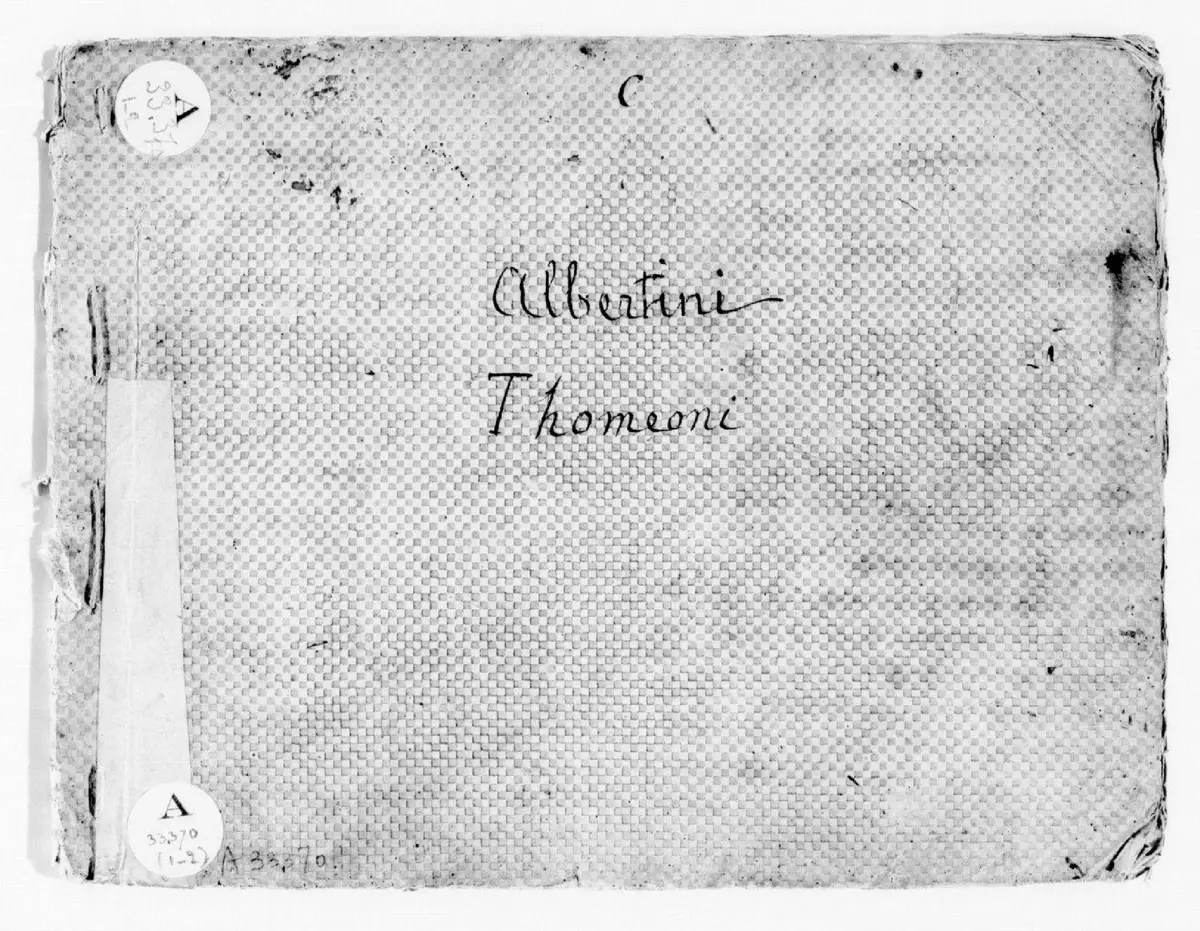 A
C
Albertini
Thomeoni
A
33370
(1-2)
A 33370.